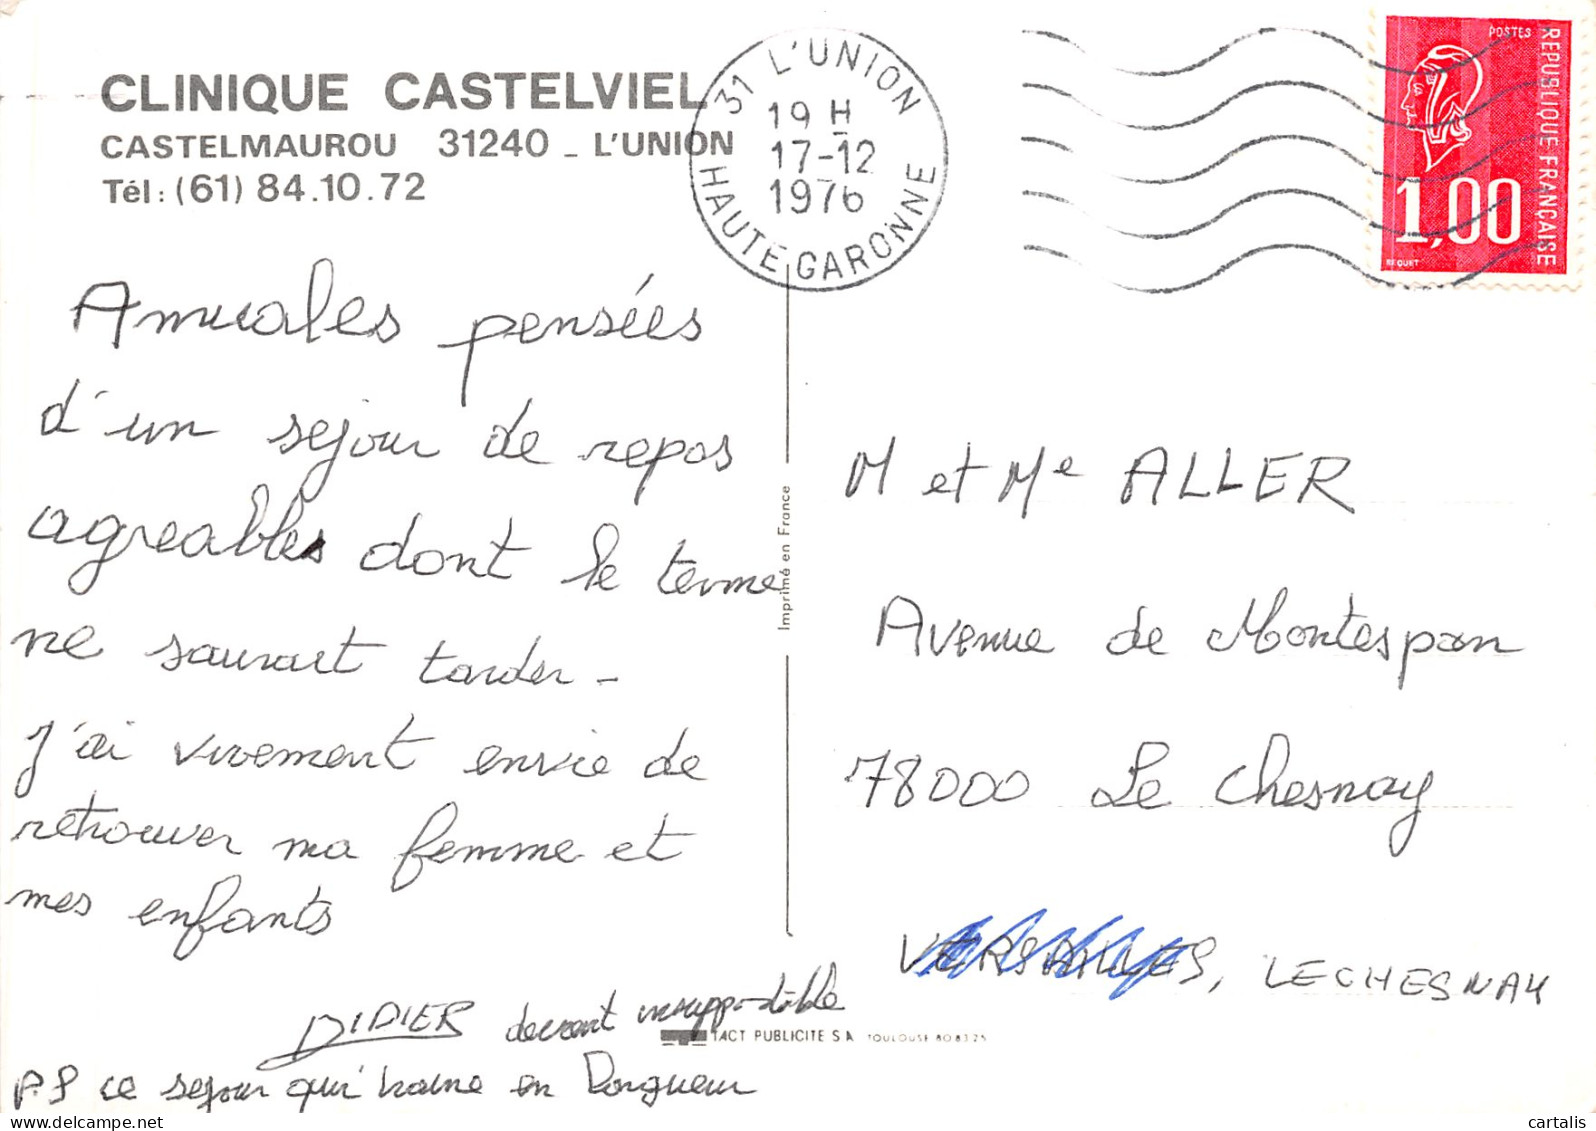 CLINIQUE CASTELVIEL
CASTELMAUROU 31240 - L'UNION
Tél : (61) 84.10.72
31 L'UNION
19 H
17-12
1976
HAUTE GARONNE
POSTES
REPUBLIQUE FRANÇAISE
1,00
BEQUET
Amicales pensées
d'un sejour de repos
agreables dont le terme
ne saurait tarder -
J'ai vivement envie de
retrouver ma femme et
mes enfants
DIDIER
PS ce sejour qui traine en longueur
devient insupportable
Imprimé en France
M et Me ALLER
Avenue de Montespan
78000 Le Chesnay
VERSAILLES, LE CHESNAY
TACT PUBLICITE S A TOULOUSE 80 83 25
cartalis